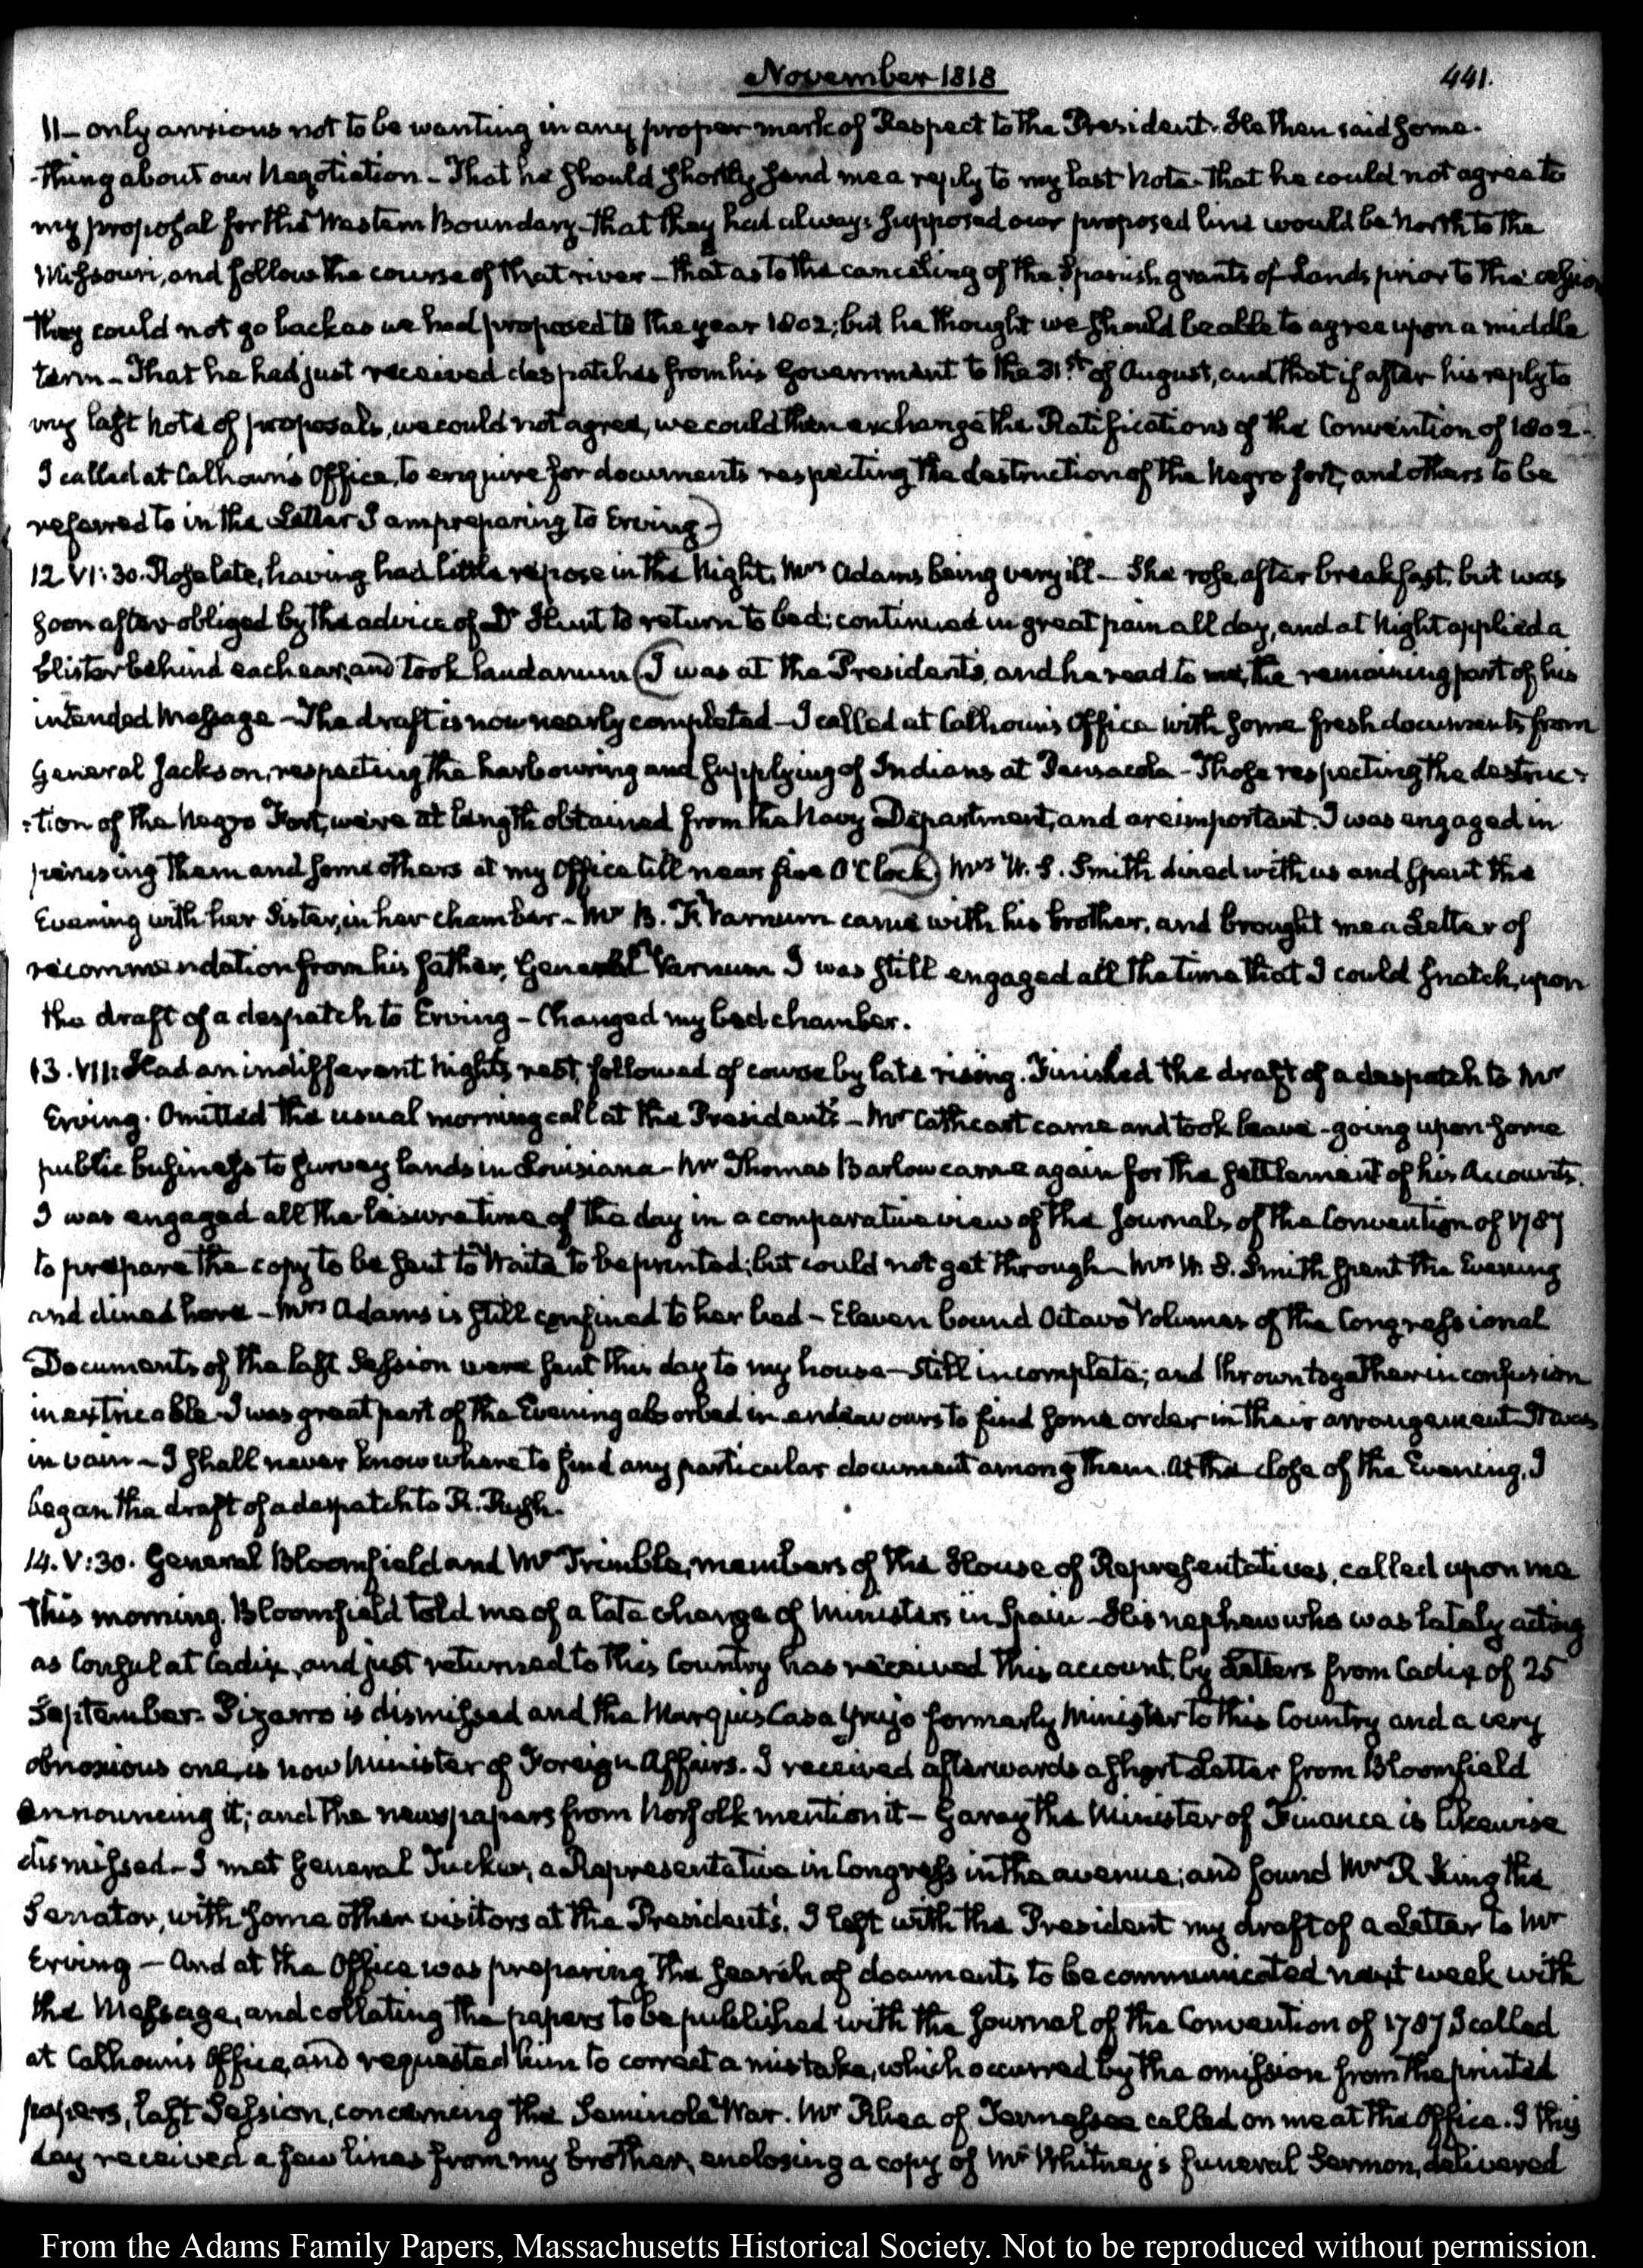 November 1818
441.
11 — only anxious not to be wanting in any proper mark of Respect to the President. He then said some-
-thing about our Negotiation — That he should shortly send me a reply to my last Note — that he could not agree to
my proposal for the Western Boundary — that they had always supposed our proposed line would be North to the
Missouri, and follow the course of that river — that as to the canceling of the Spanish grants of Lands prior to the cession
they could not go back as we had proposed to the year 1802; but he thought we should be able to agree upon a middle
term — That he had just received despatches from his Government to the 31st. of August, and that if after his reply to
my last Note of proposals, we could not agree, we could then exchange the Ratifications of the Convention of 1802.
I called at Calhoun's Office, to enquire for documents respecting the destruction of the Negro fort, and others to be
referred to in the Letter I am preparing to Erving —)
12 VI:30. Rose late, having had little repose in the Night, Mrs Adams being very ill — She rose, after breakfast, but was
soon after obliged by the advice of Dr Hunt to return to bed; continued in great pain all day, and at Night applied a
blister behind each ear, and took laudanum (I was at the President's, and he read to me, the remaining part of his
intended Message — The draft is now nearly completed — I called at Calhoun's Office with some fresh documents from
General Jackson, respecting the harbouring and supplying of Indians at Pensacola — Those respecting the destruc-
-tion of the Negro Fort, were at length obtained from the Navy Department, and are important. I was engaged in
perusing them and some others at my Office till near five O'Clock) Mrs W. S. Smith dined with us and spent the
Evening with her Sister, in her chamber — Mr B. F. Varnum came with his brother, and brought me a Letter of
recommendation from his father, General Varnum I was still engaged all the time that I could snatch, upon
the draft of a despatch to Erving — Changed my bed chamber.
13. VII: Had an indifferent Night's rest, followed of course by late rising. Finished the draft of a despatch to Mr
Erving. Omitted the usual morning call at the President's — Mr Cathcart came and took leave — going upon some
public business to survey lands in Louisiana — Mr Thomas Barlow came again for the settlement of his Accounts.
I was engaged all the leisure time of the day in a comparative view of the Journals of the Convention of 1787
to prepare the copy to be sent to Waite to be printed; but could not get through — Mrs W. S. Smith spent the Evening
and dined here — Mrs Adams is still confined to her bed — Eleven bound Octavo Volumes of the Congressional
Documents of the last Session were sent this day to my house — still incomplete; and thrown together in confusion
inextricable — I was great part of the Evening absorbed in endeavours to find some order in their arrangement It was
in vain — I shall never know where to find any particular document among them. At the close of the Evening, I
began the draft of a despatch to R. Rush.
14. V:30. General Bloomfield and Mr Trimble, members of the House of Representatives, called upon me
this morning. Bloomfield told me of a late change of Ministers in Spain — His nephew who was lately acting
as Consul at Cadix, and just returned to this Country has received this account, by Letters from Cadix of 25
September. Pizarro is dismissed and the Marquis Casa Yrujo formerly Minister to this Country and a very
obnoxious one, is now Minister of Foreign Affairs. I received afterwards a short Letter from Bloomfield
announcing it; and the newspapers from Norfolk mention it — Garay the Minister of Finance is likewise
dismissed — I met General Tucker, a Representative in Congress in the avenue; and found Mr R King the
Senator, with some other visitors at the President's. I left with the President my draft of a Letter to Mr
Erving — And at the Office was preparing the search of documents to be communicated next week with
the Message, and collating the papers to be published with the Journal of the Convention of 1787 I called
at Calhoun's Office, and requested him to correct a mistake, which occurred by the omission from the printed
papers, last Session, concerning the Seminole War. Mr Rhea of Tennessee called on me at the Office. I this
day received a few lines from my brother, enclosing a copy of Mr Whitney's funeral Sermon, delivered
From the Adams Family Papers, Massachusetts Historical Society. Not to be reproduced without permission.